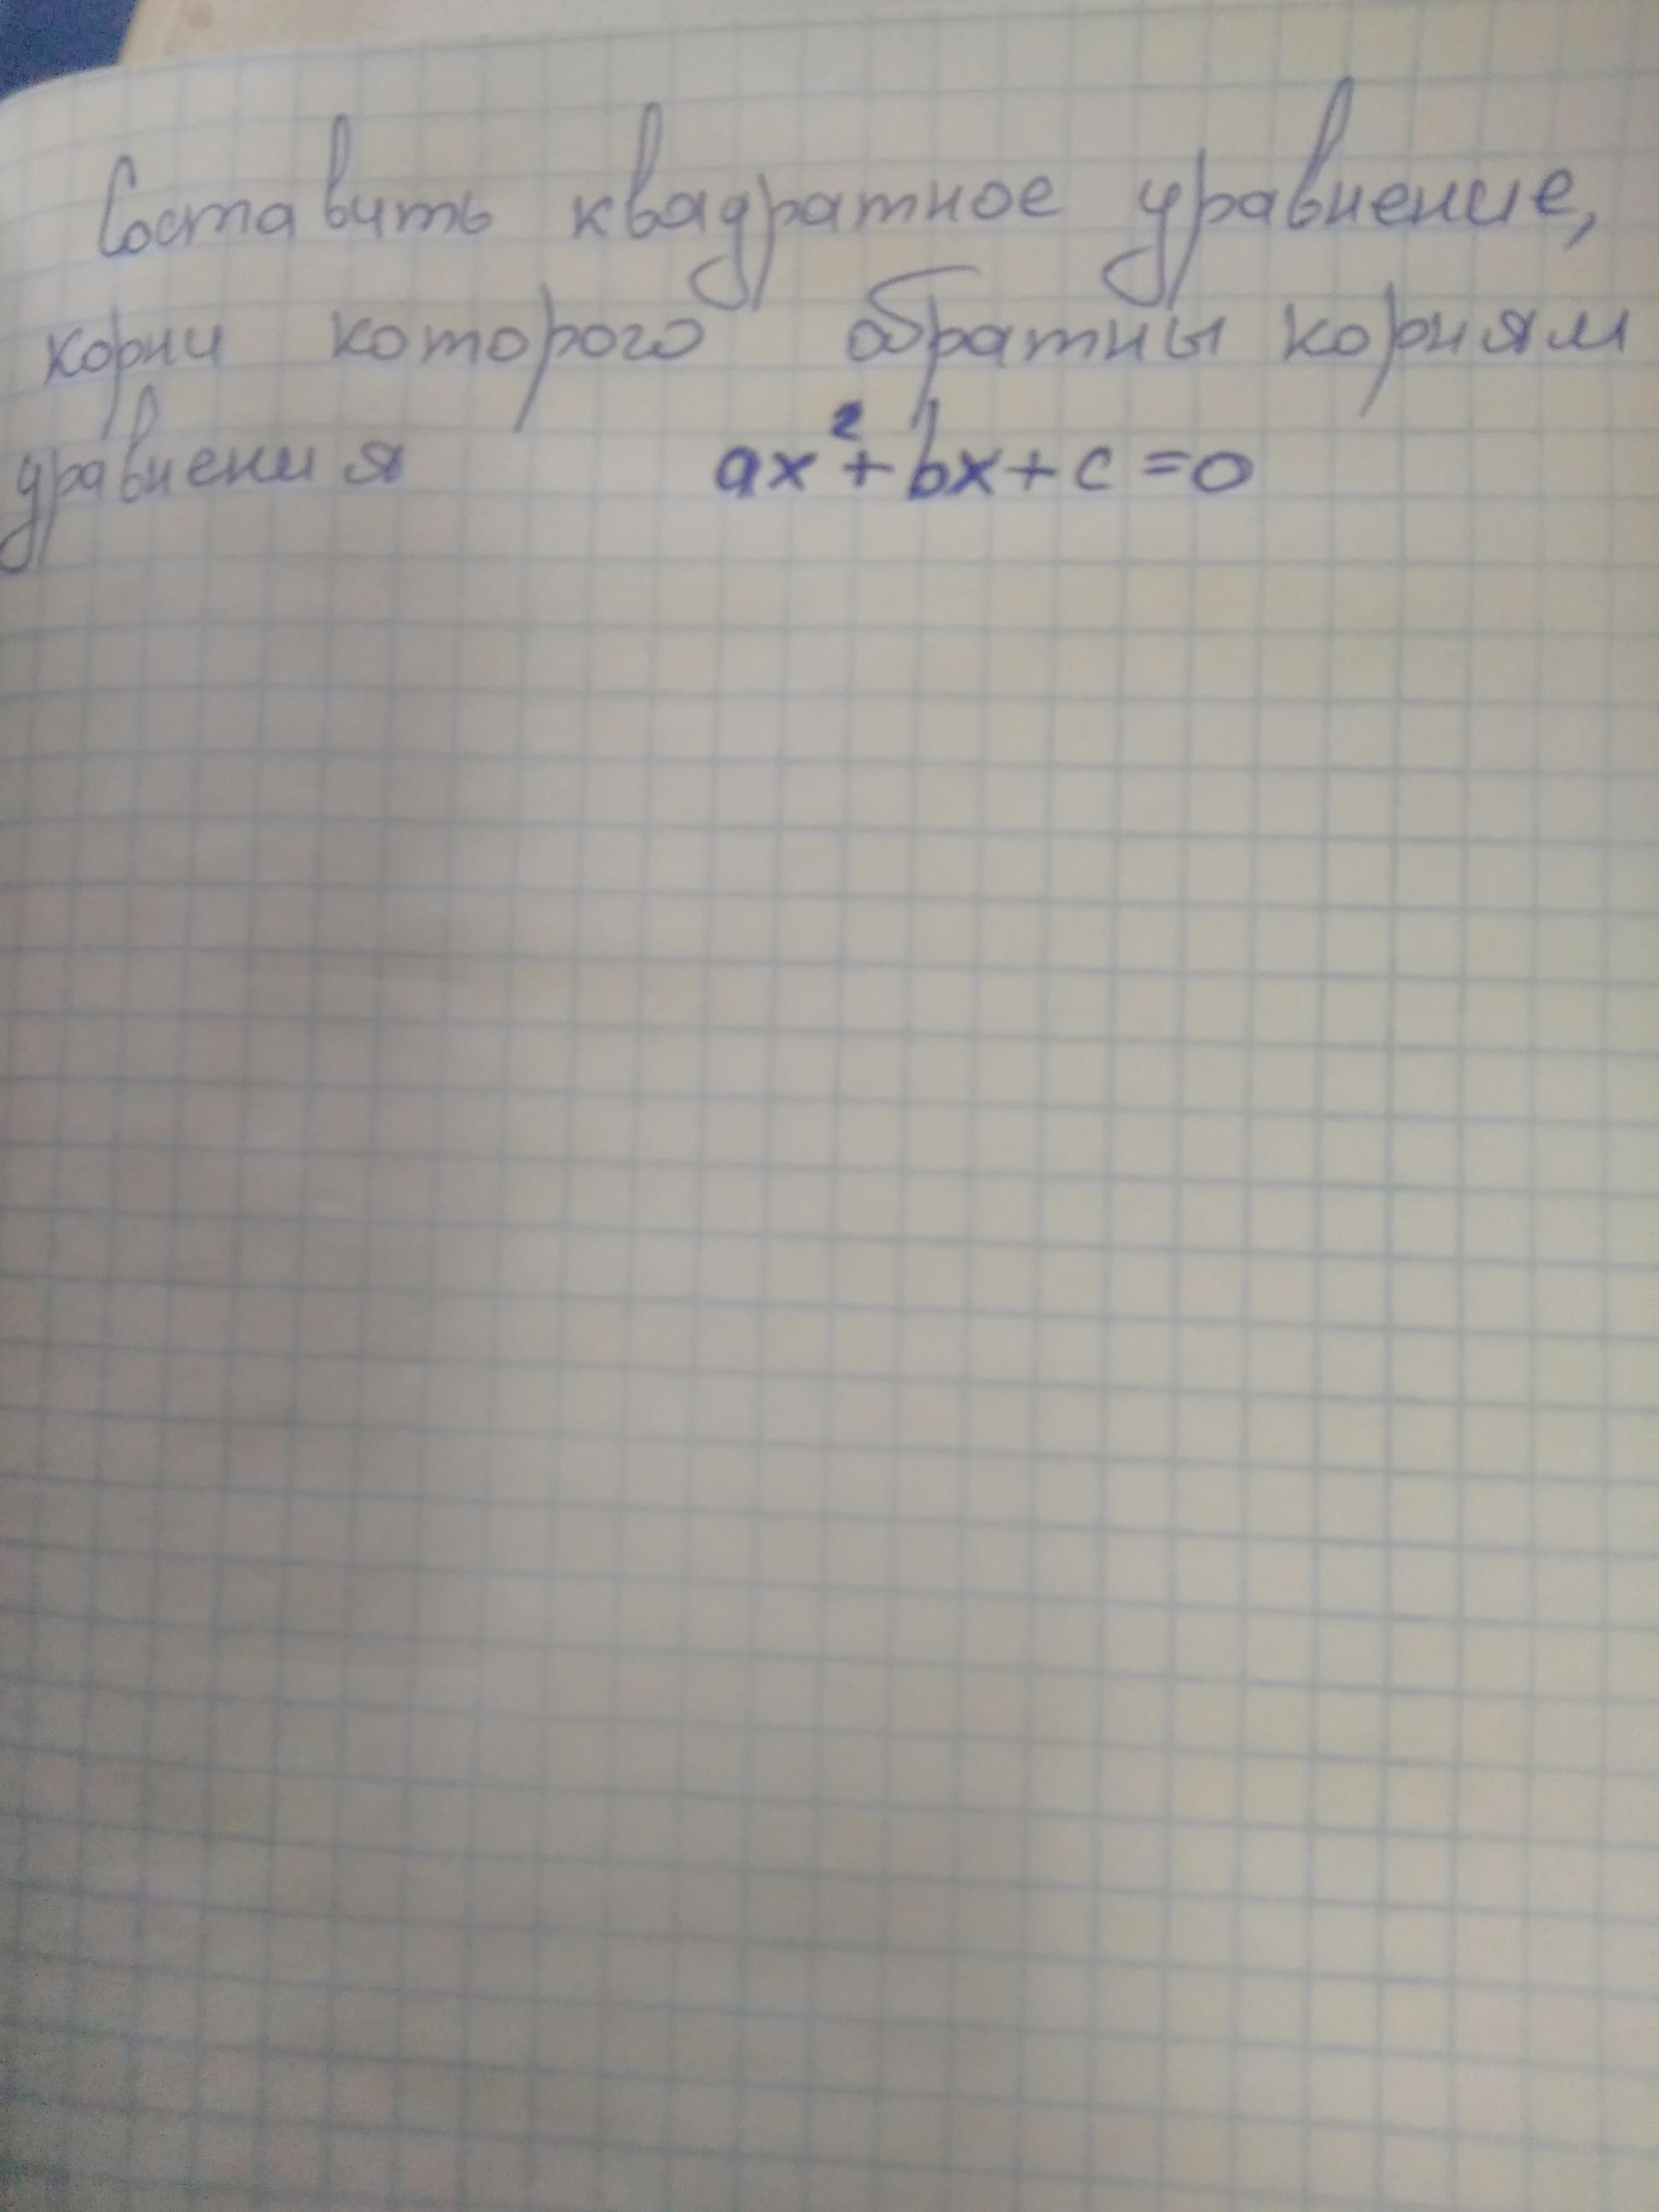 Составить квадратное уравнение,
корни которого обратны корням
уравнения ax²+bx+c=0